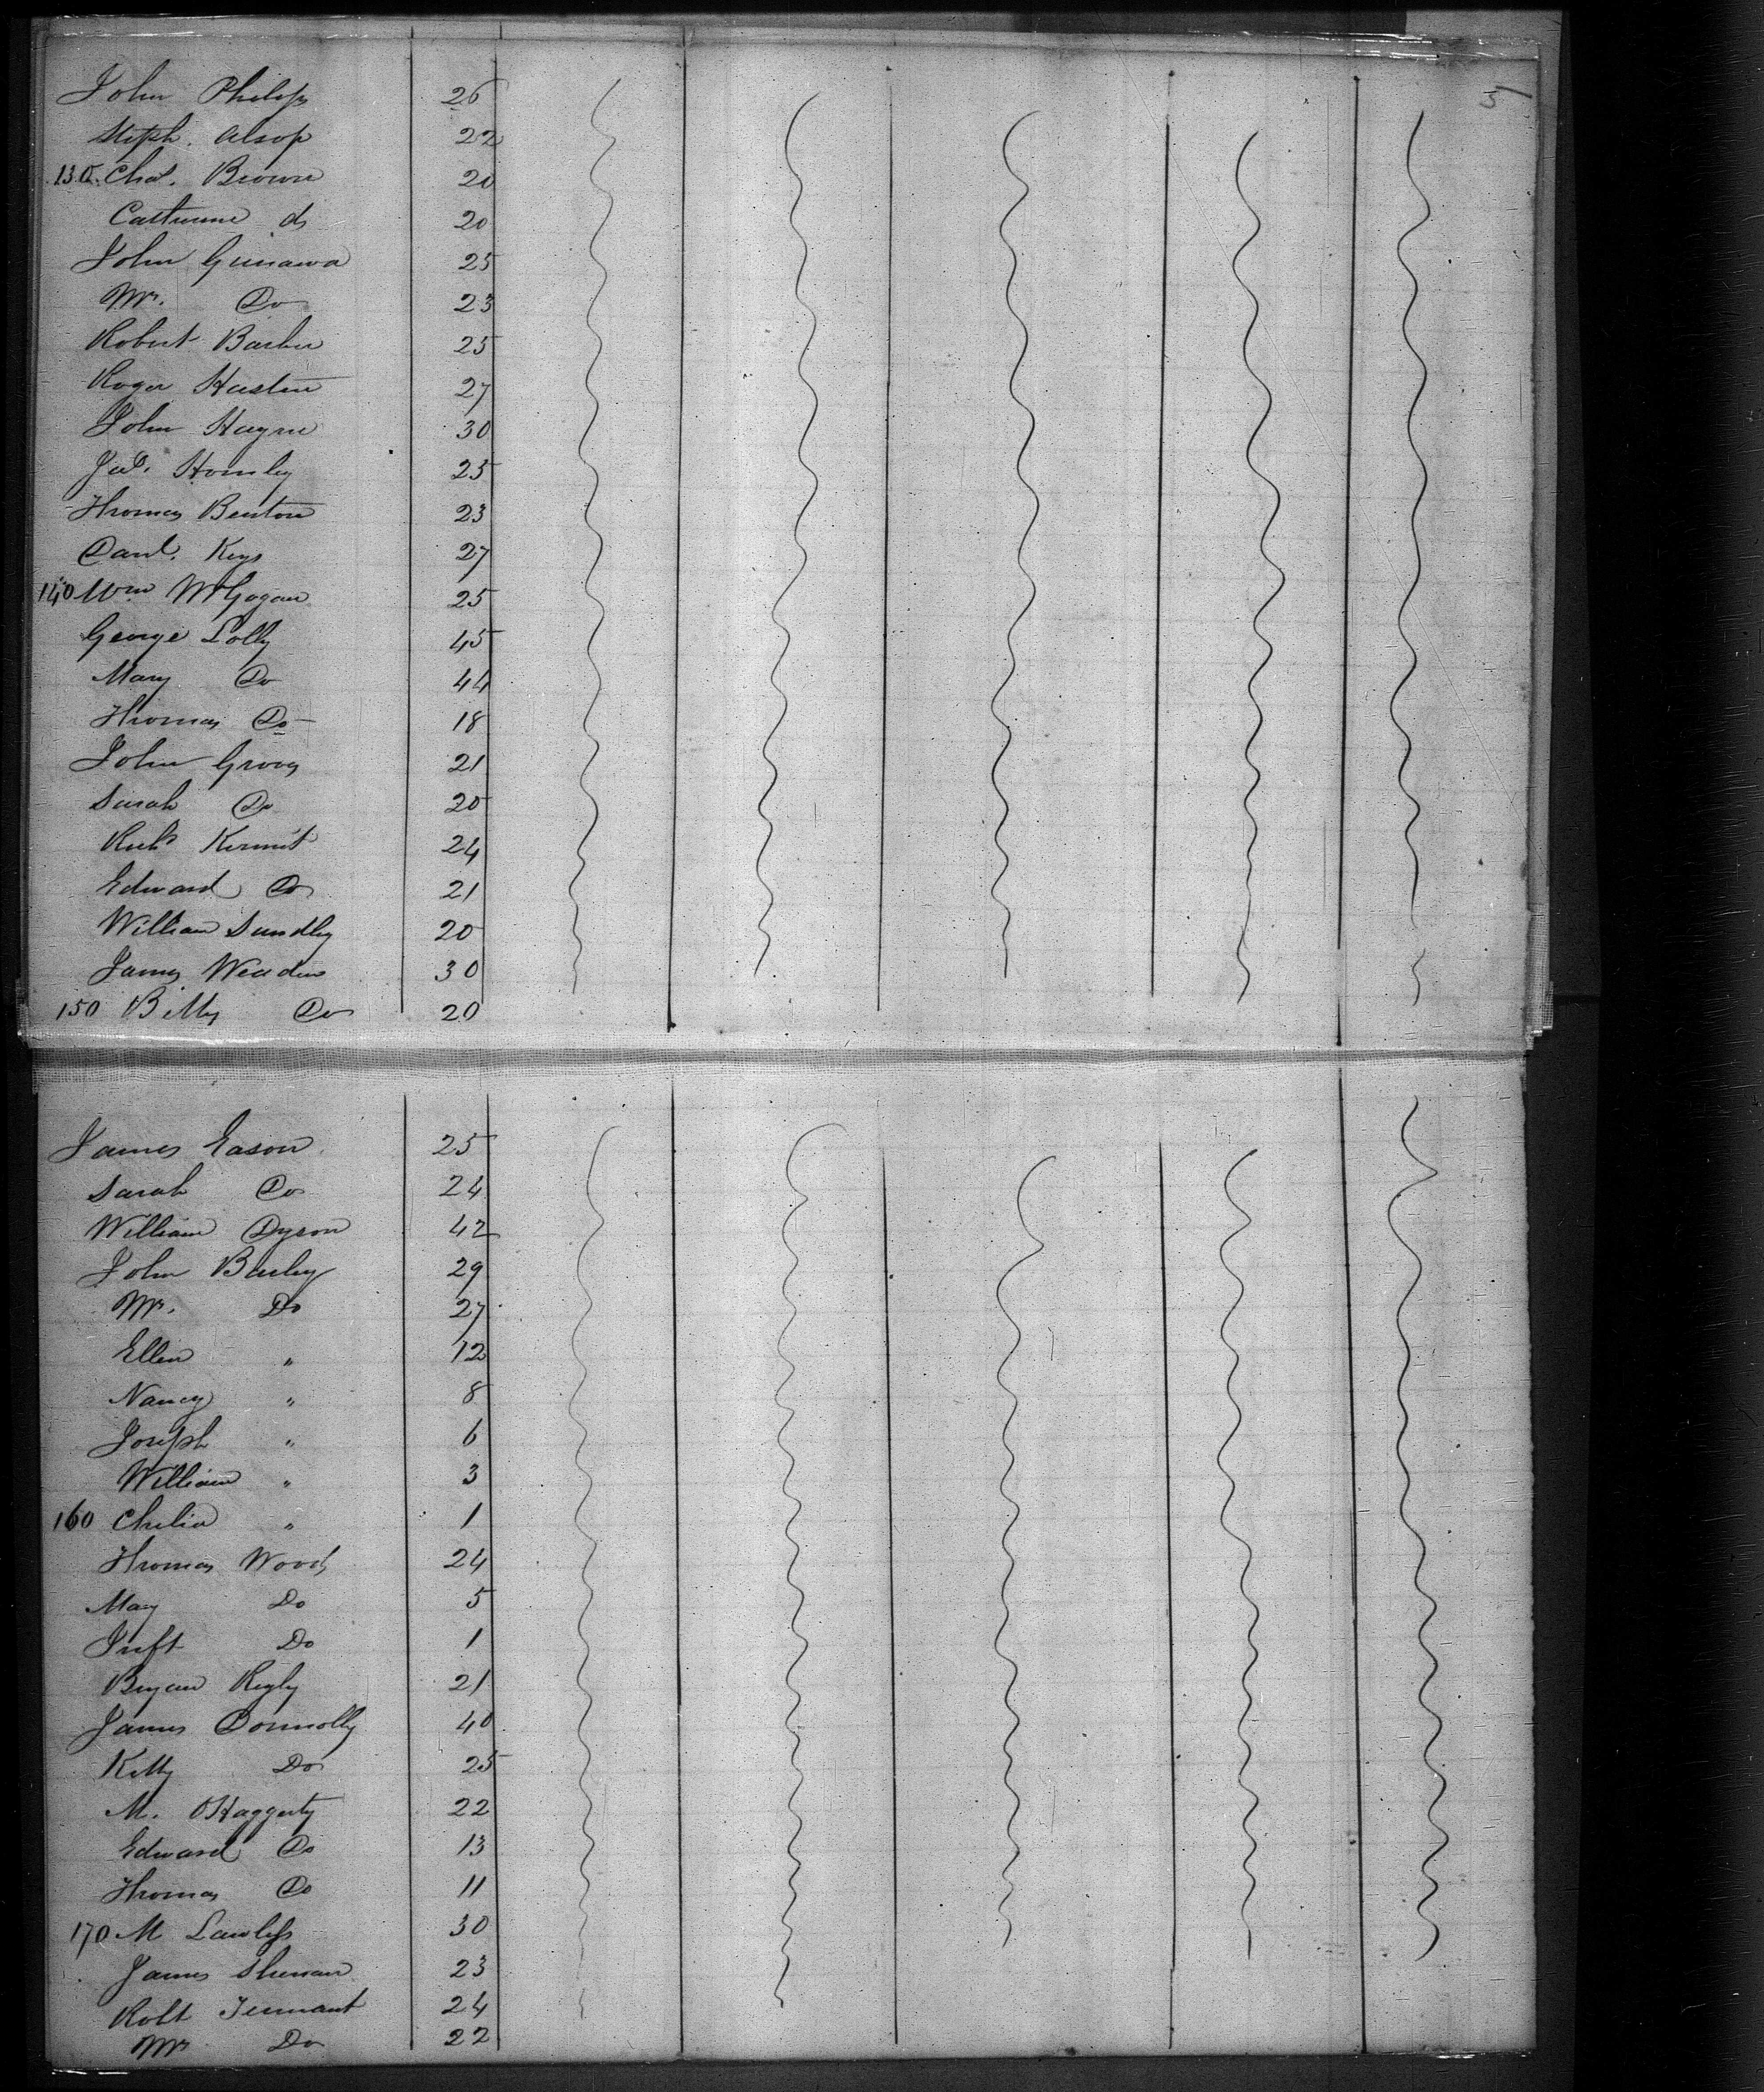 John Philips 26
Steph. Alsop 22
130 Chas. Brown 20
Do 20
John 25
Mrs. Do 23
Robert Barber 25
Roger 27
John Hayne 30
Jas. 25
Thomas Benton 23
Danl. Keys 27
140 Wm McGogan 25
George Lolly 45
Mary Do 44
Thomas Do 18
John Groos 21
Sarah Do 20
Richd Kermit 24
Edward Do 21
William Sundley 20
James Weaden 30
150 Betty Do 20
James Eason 25
Sarah Do 24
William Dyson 42
John Burley 29
Mrs. Do 27
Ellen " 12
Nancy " 8
Joseph " 6
William " 3
160 Chelia " 1
Thomas Wood 24
Mary Do 5
Inft Do 1
Bryan Rigly 21
James Donnolly 40
Kitty Do 25
M. OHaggerty 22
Edward Do 13
Thomas Do 11
170 M Lawless 30
James 23
Robt Tennant 24
Mrs Do 22